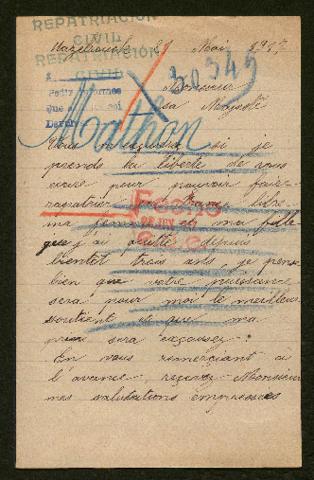 REPATRIACION
CIVIL
REPATRIACION
CIVIL
Hazebrouck 21 Mai 1917
30349
Monsieur
sa Majesté
Mathon
Vous m'excuserez si je
prends la liberté de vous
écrire pour pouvoir faire
rapatrier en France libre
ma femme et ma fille
que j'ai quitté depuis
bientôt trois ans je pense
bien que votre puissance
sera pour moi le meilleur
soutient et que ma
sera exaussez.
En vous remerciant à
l'avance recevez Monsieur
mes salutations empressées